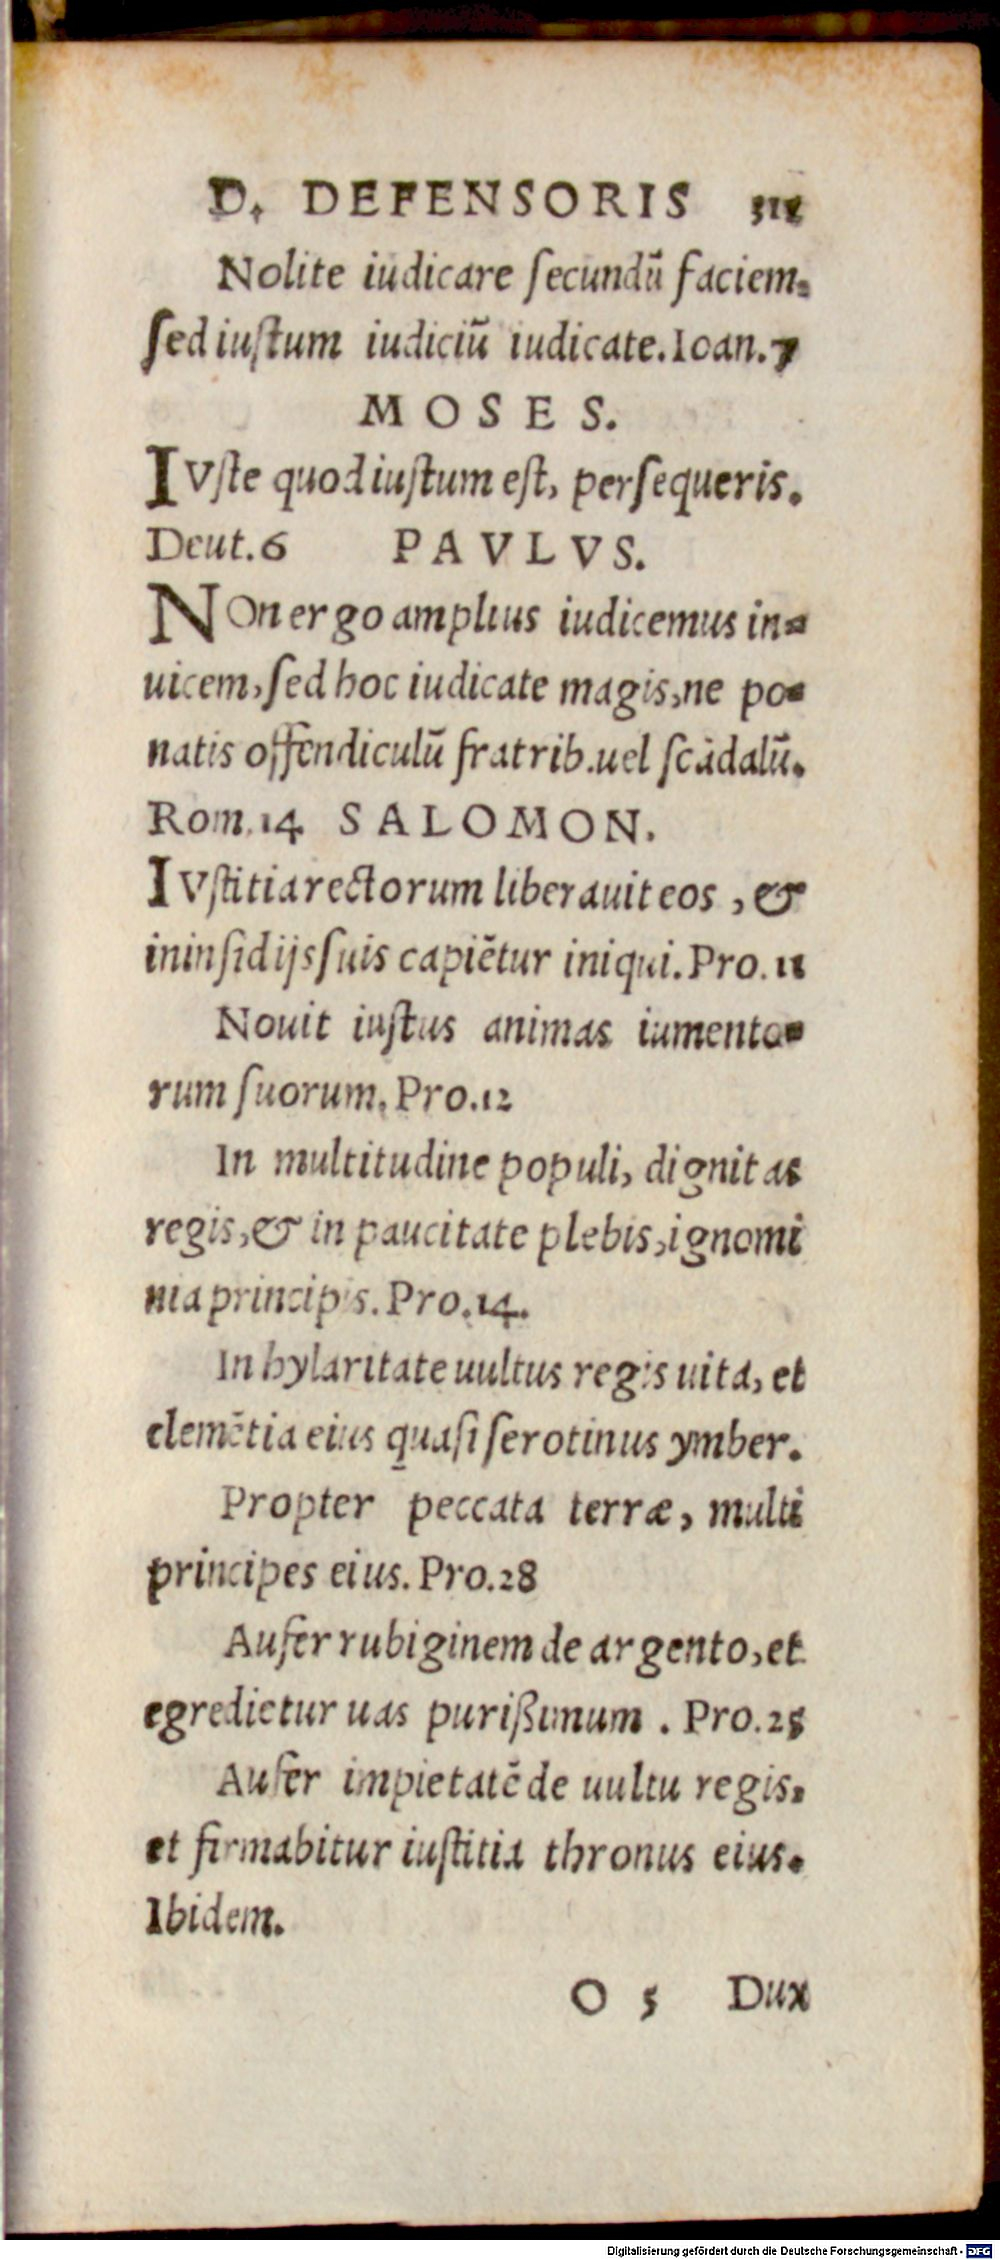 D. DEFENSORIS
Nolite iudicare ſecundū faciem,
ſed iuſtum iudiciū iudicate. Ioan. 7
MOSES.
IVſte quod iuſtum eſt, perſequeris.
Deut. 6 PAVLVS.
NOn ergo amplius iudicemus in-
uicem, ſed hoc iudicate magis, ne po-
natis offendiculū fratrib. uel ſcādalū.
Rom. 14 SALOMON.
IVſtitia rectorum liberauit eos , &
in inſidijs ſuis capiētur iniqui. Pro. 11
Nouit iuſtus animas iumento-
rum ſuorum. Pro. 12
In multitudine populi, dignitas
regis, & in paucitate plebis, ignomi
nia principis. Pro. 14.
In hylaritate uultus regis uita, et
clemētia eius quaſi ſerotinus ymber.
Propter peccata terræ, multi
principes eius. Pro. 28
Aufer rubiginem de argento, et
egredietur uas purißimum . Pro. 25
Aufer impietatē de uultu regis,
et firmabitur iuſtitia thronus eius.
Ibidem.
O 5 Dux
Digitalisierung gefördert durch die Deutsche Forschungsgemeinschaft - DFG